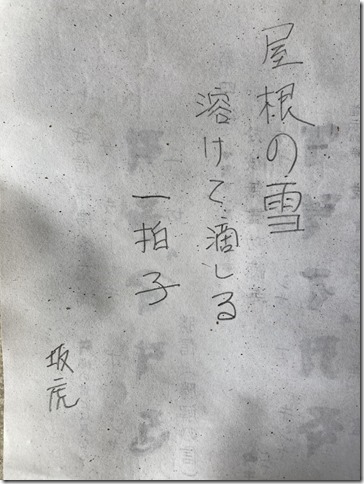 屋根の雪
溶けて滴しる
一拍子
坂虎